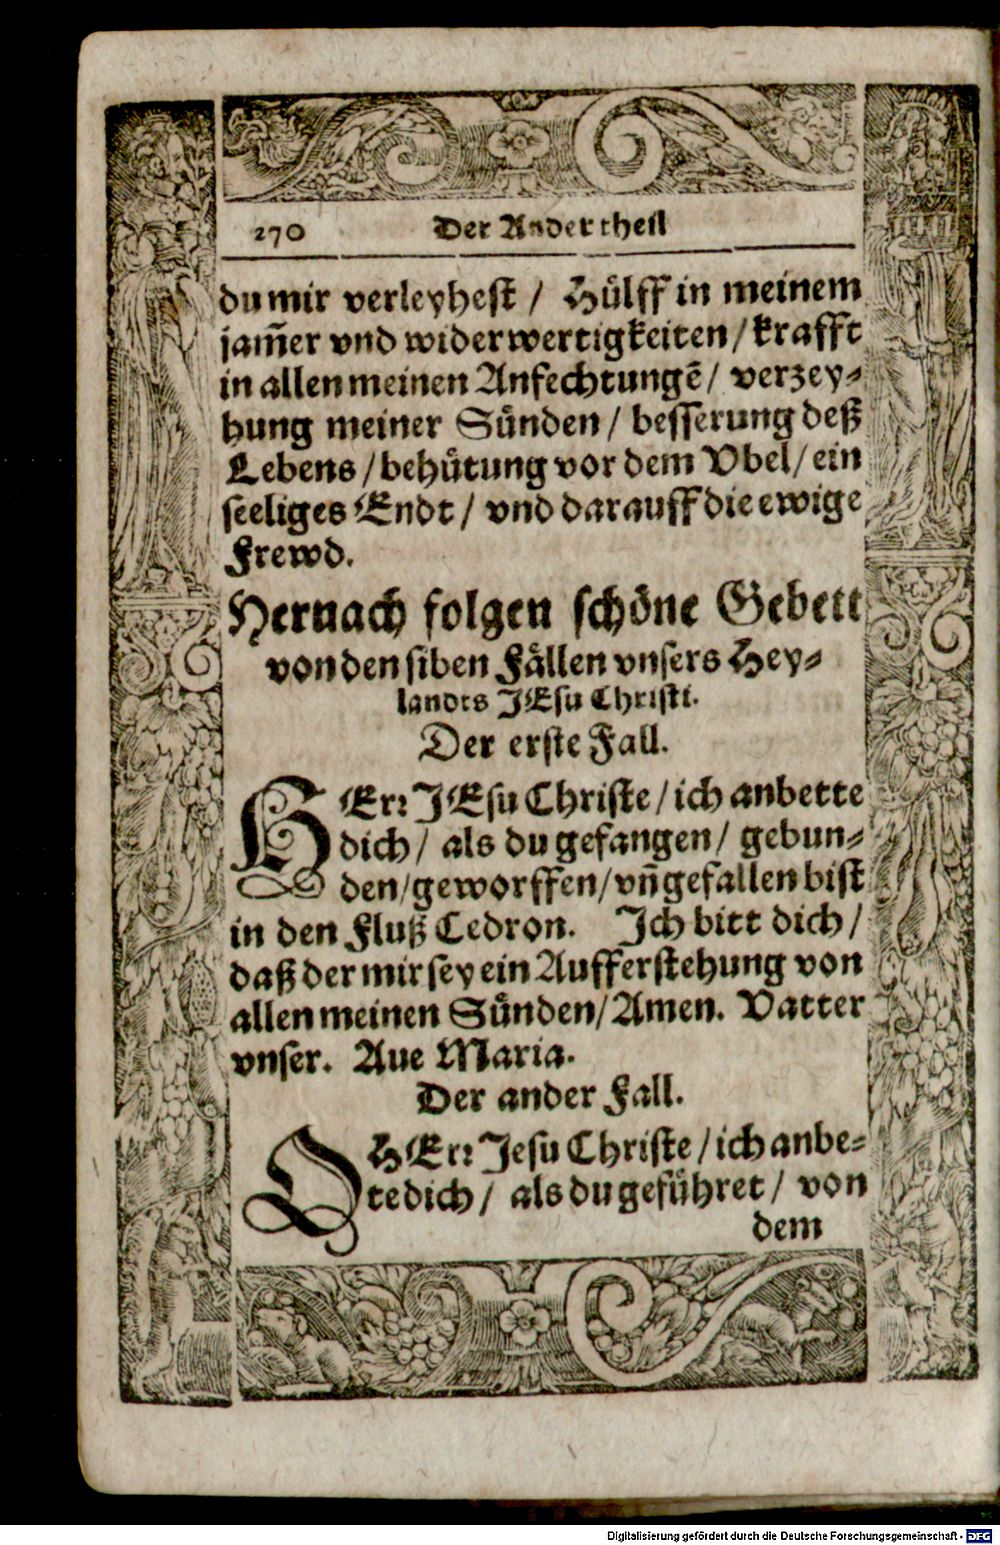 270 Der Ander theil
du mir verleyhest / Hülff in meinem
jam̃er vnd widerwertigkeiten / krafft
in allen meinen Anfechtungẽ / verzey⸗
hung meiner Sünden / besserung deß
Lebens / behütung vor dem Vbel / ein
seeliges Endt / vnd darauff die ewige
Frewd.
Hernach folgen schöne Gebett
von den siben Fällen vnsers Hey⸗
landts JEsu Christi.
Der erste Fall.
HErꝛ JEsu Christe / ich anbette
dich / als du gefangen / gebun⸗
den / geworffen / vñ gefallen bist
in den Fluß Cedron. Ich bitt dich /
daß der mir sey ein Aufferstehung von
allen meinen Sünden / Amen. Vatter
vnser. Aue Maria.
Der ander Fall.
O HErꝛ Jesu Christe / ich anbe⸗
te dich / als du geführet / von
dem
Digitalisierung gefördert durch die Deutsche Forschungsgemeinschaft - DFG